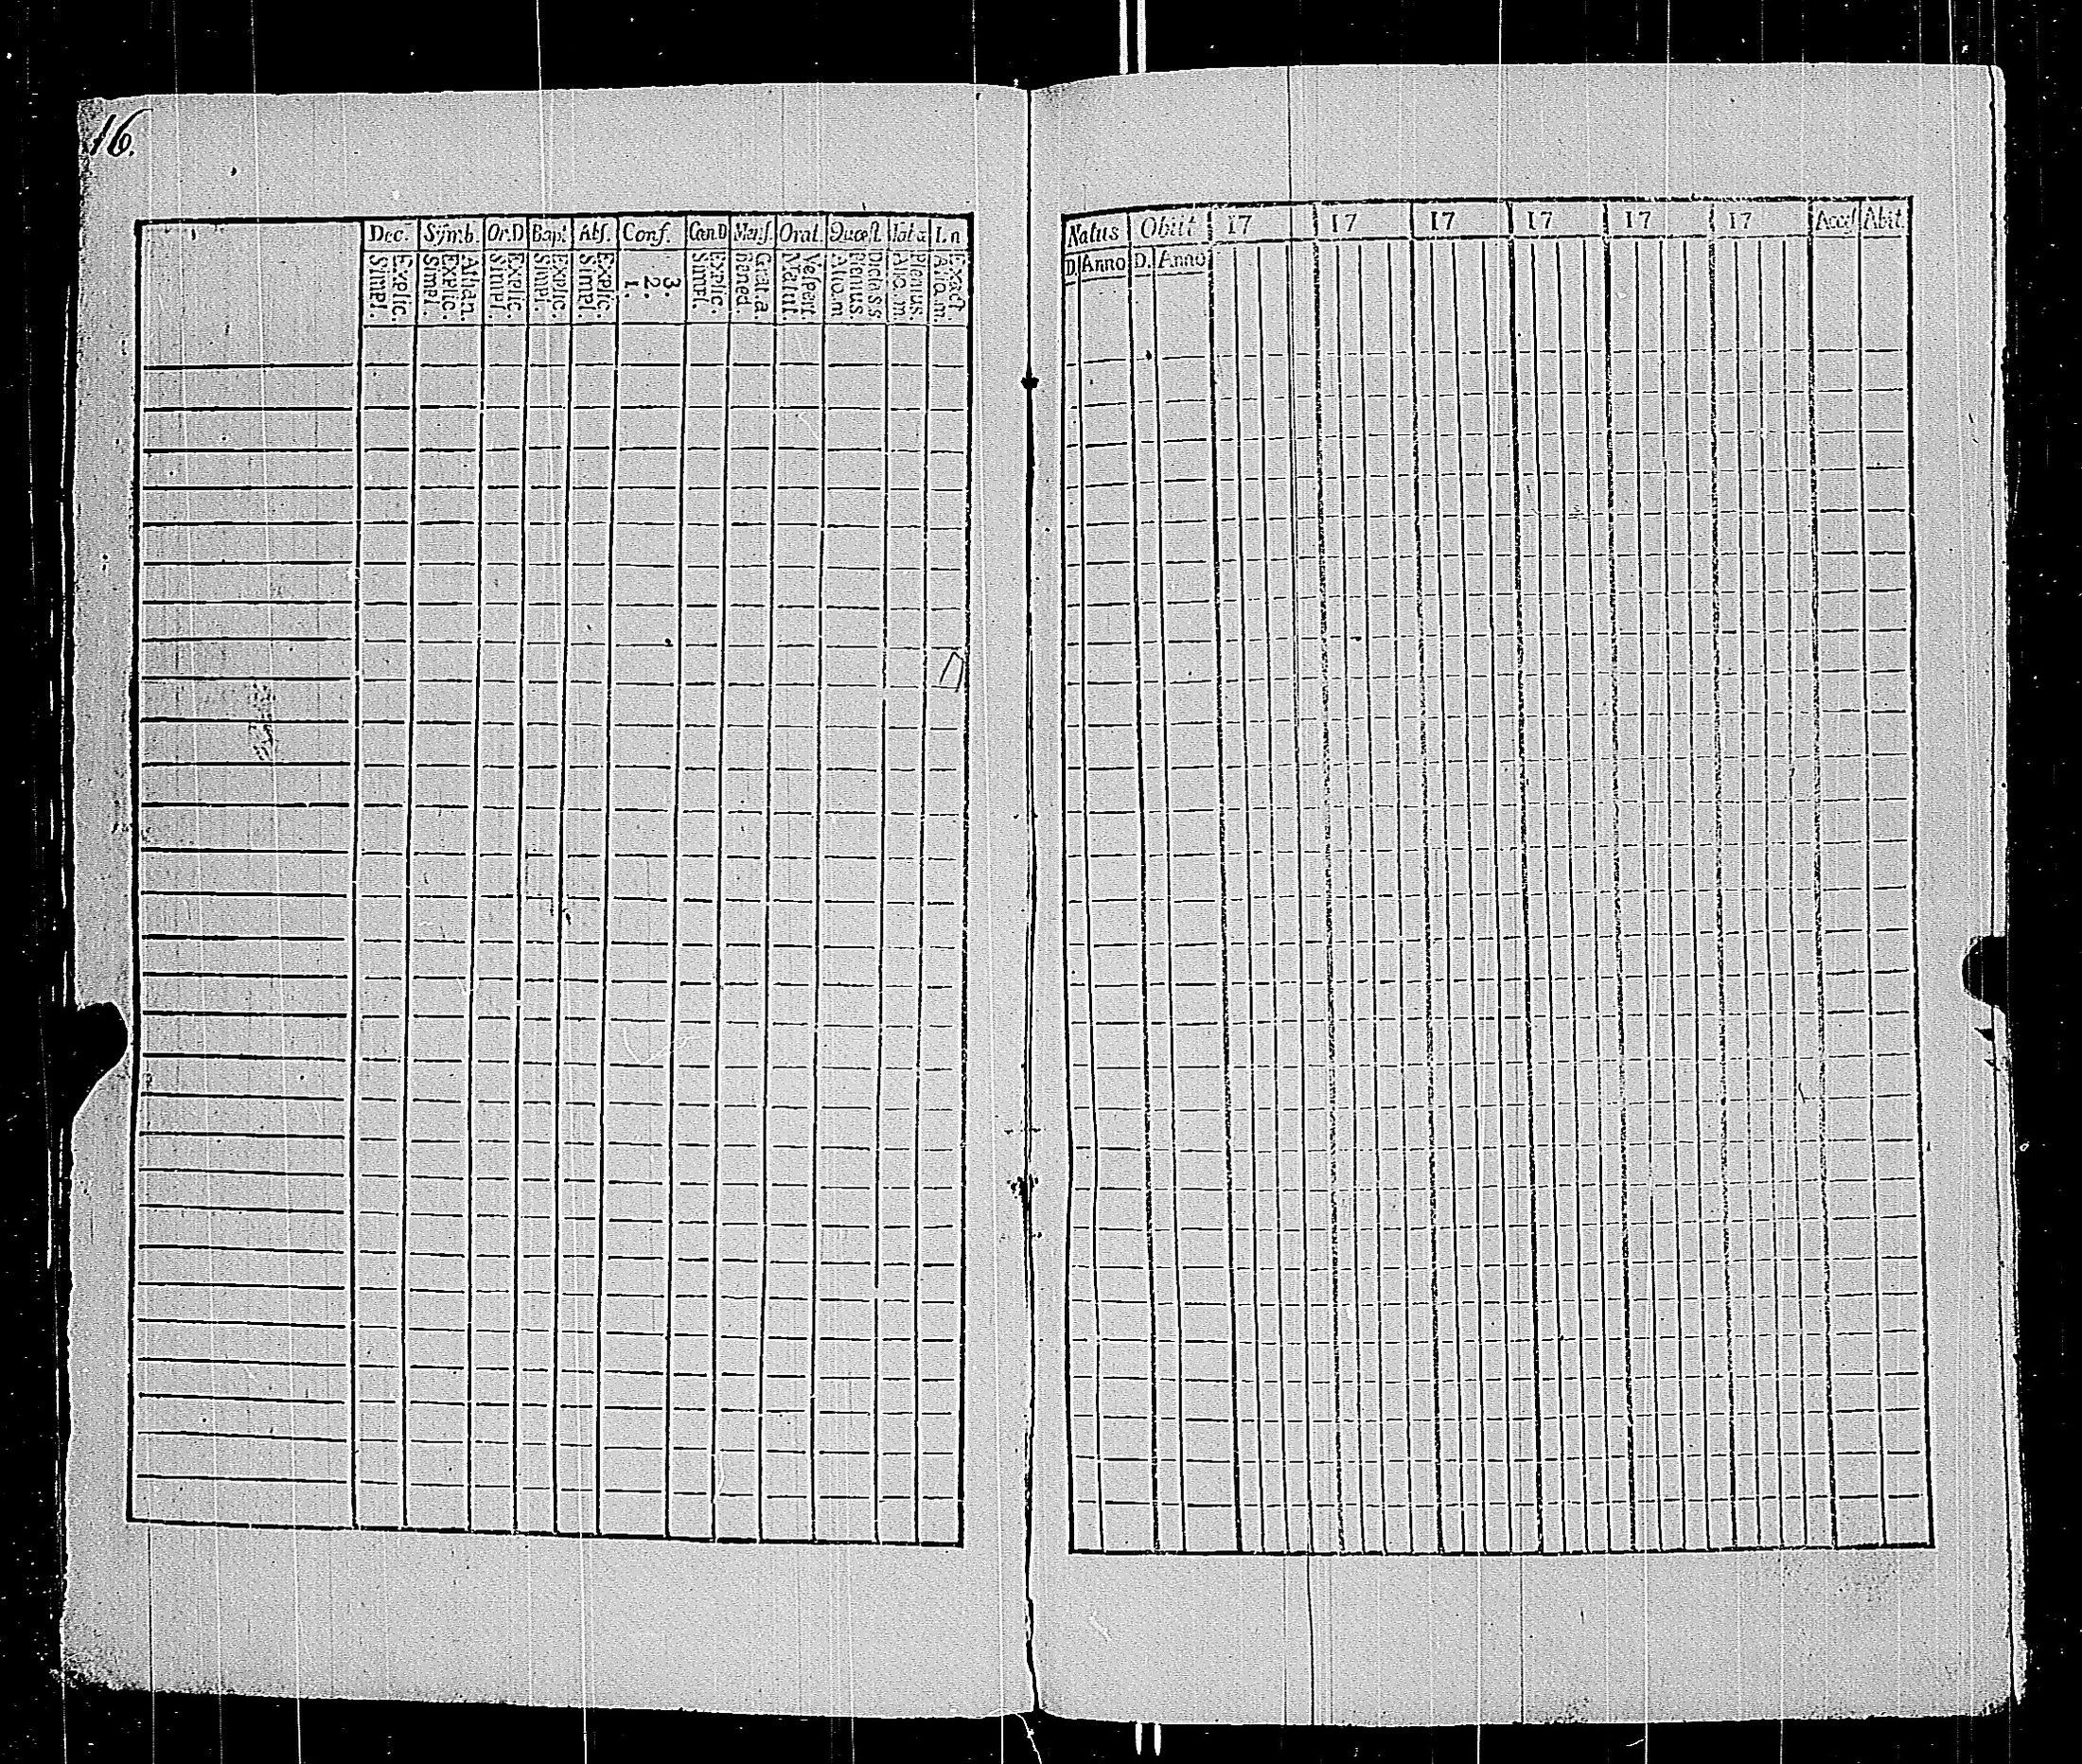 16.
Dec. Symb. Or.D Bapt. Abs. Conf. Can.D Mens. Orat. Quæst. Tabæ L.n
Simpl. Explic. Simpl. Explic. Athan. Simpl. Explic. Simpl. Explic. Simpl. Explic. 1. 2. 3. Simpl. Explic. Bened. Grat.a. Matut. Vespert. Al.q.m Plenus. Dict.a SS. Al.q.m Plenus. A.q.m Exact
Natus Obiit 17 17 17 17 17 17 Acces. Abit.
D. Anno D. Anno